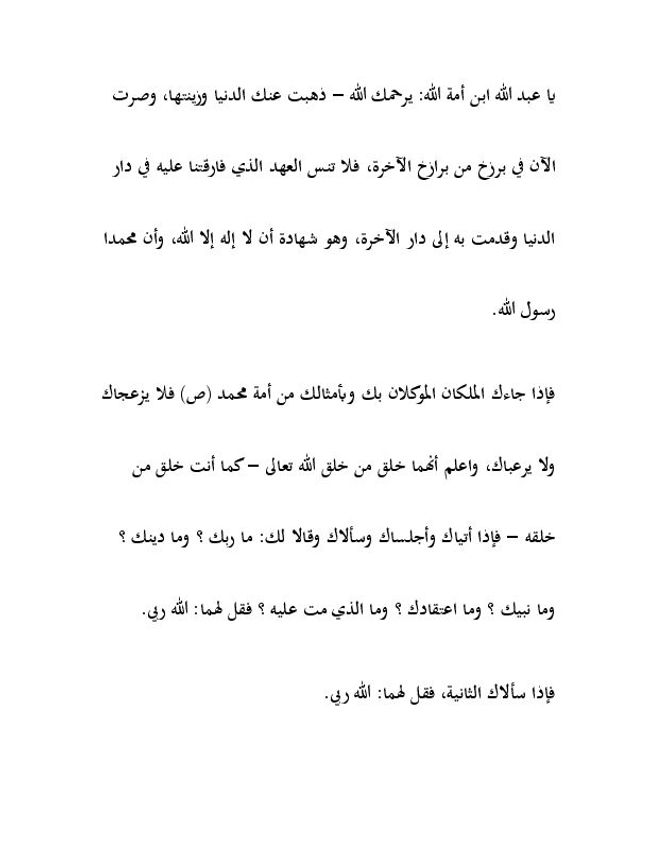 يا عبد الله ابن أمة الله: يرحمك الله – ذهبت عنك الدنيا وزينتها، وصرت
الآن في برزخ من برازخ الآخرة، فلا تنس العهد الذي فارقتنا عليه في دار
الدنيا وقدمت به إلى دار الآخرة، وهو شهادة أن لا إله إلا الله، وأن محمدا
رسول الله.
فإذا جاءك الملكان الموكلان بك وبأمثالك من أمة محمد (ص) فلا يزعجاك
ولا يرعباك، واعلم أنهما خلق من خلق الله تعالى – كما أنت خلق من
خلقه – فإذا أتياك وأجلساك وسألاك وقالا لك: ما ربك ؟ وما دينك ؟
وما نبيك ؟ وما اعتقادك ؟ وما الذي مت عليه ؟ فقل لهما: الله ربي.
فإذا سألاك الثانية، فقل لهما: الله ربي.